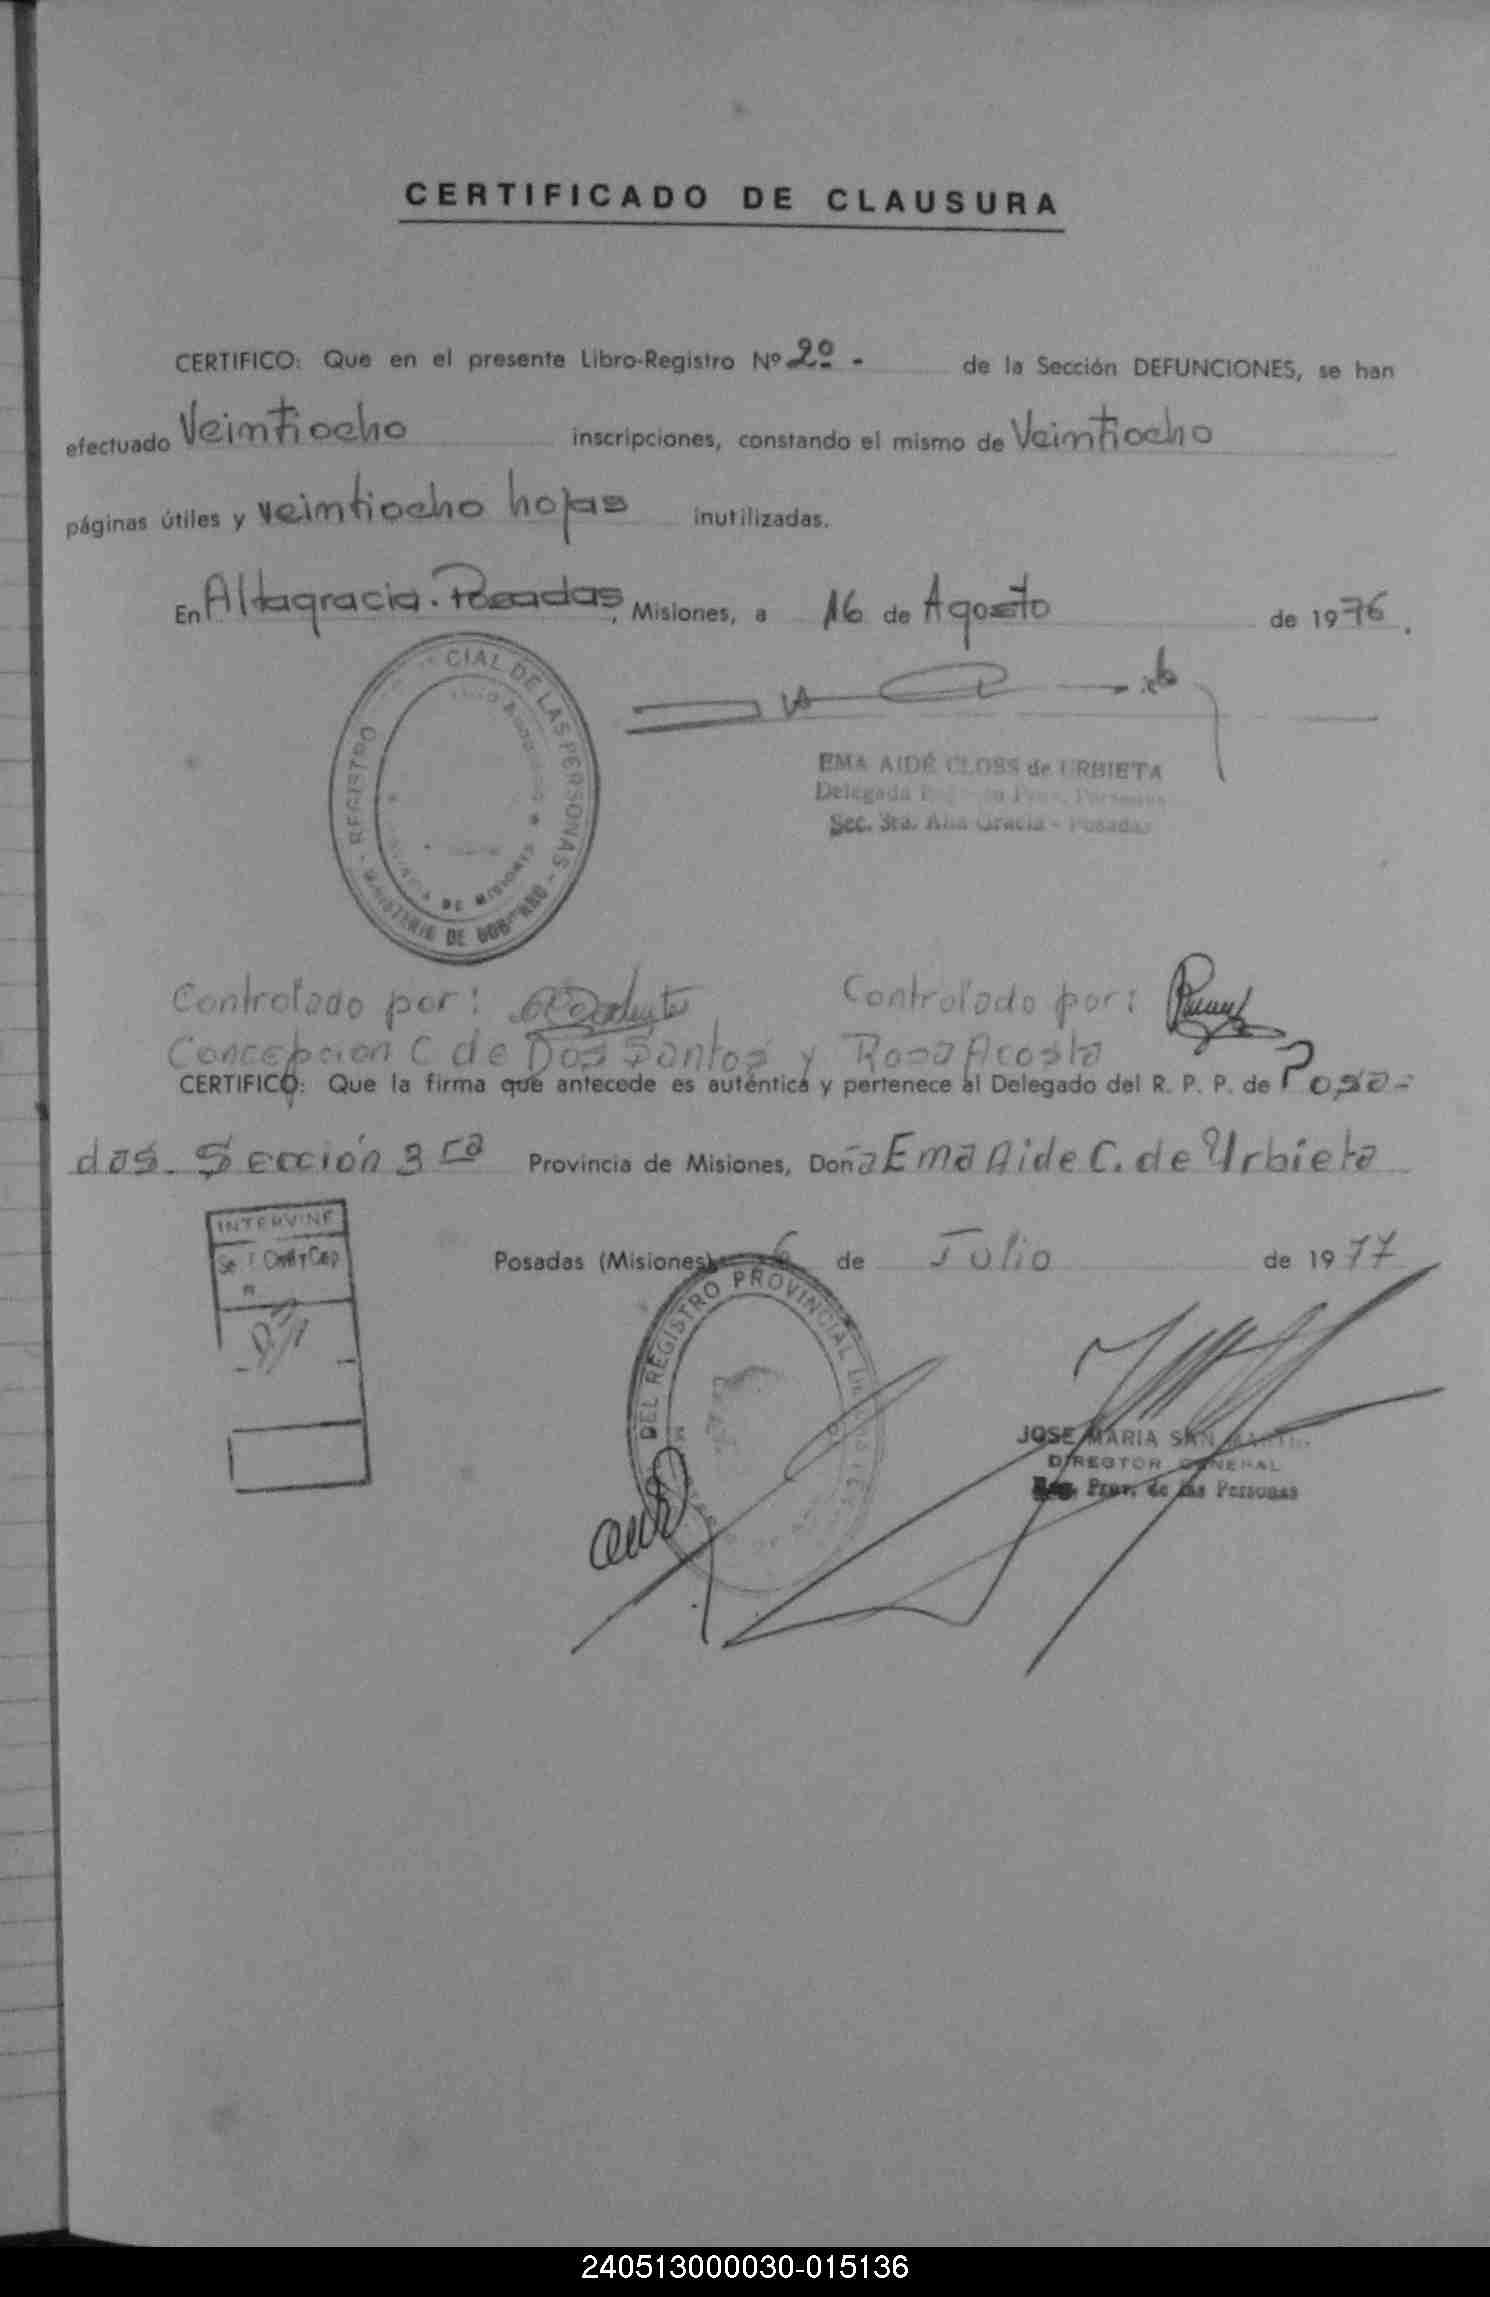 CERTIFICADO DE CLAUSURA
CERTIFICO: Que en el presente Libro-Registro Nº 2º - de la Sección DEFUNCIONES, se han
efectuado Veintiocho inscripciones, constando el mismo de Veintiocho
páginas útiles y veintiocho hojas inutilizadas.
En Altagracia. Posadas, Misiones, a 16 de Agosto de 1976.
REGISTRO CIAL DE LAS PERSONAS - MINISTERIO DE GOBIERNO -
DE MISIONES
EMA AIDÉ CLOSS de URBIETA
Delegada
Sec. 3ra. Alta Gracia - Posadas
Controlado por: Controlado por:
Concepcion C de Dos Santos y Rosa Acosta
CERTIFICO: Que la firma que antecede es auténtica y pertenece al Delegado del R. P. P. de Posa-
das. Sección 3ra Provincia de Misiones, Doña Ema Aide C. de Urbieta
INTERVINE
Posadas (Misiones) 6 de Julio de 1977
DEL REGISTRO PROVINCIAL
JOSE MARIA SAN MARTIN
DIRECTOR GENERAL
Reg. Prov. de las Personas
240513000030-015136